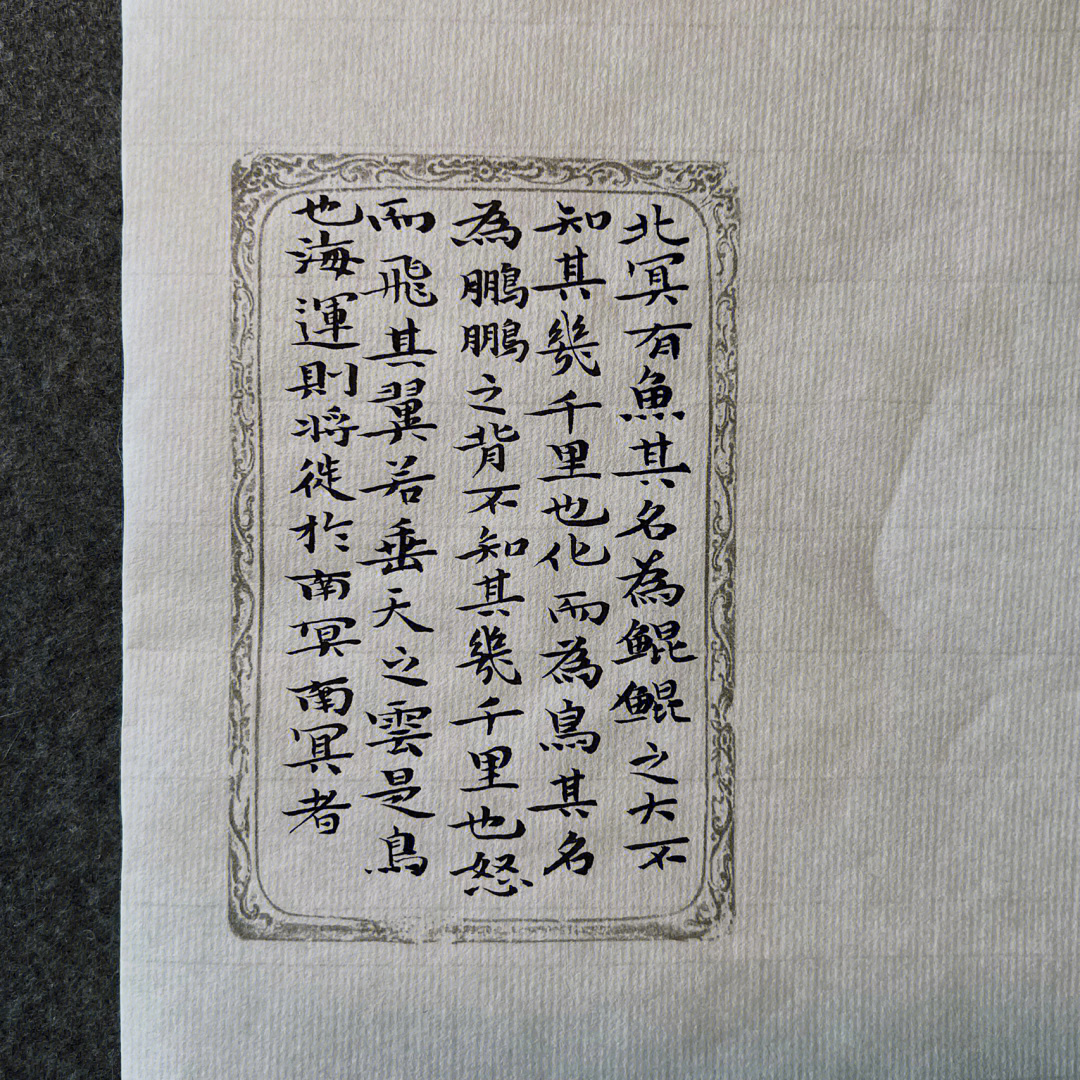 北冥有魚其名為鯤鯤之大不
知其幾千里也化而為鳥其名
為鵬鵬之背不知其幾千里也怒
而飛其翼若垂天之雲是鳥
也海運則將徙於南冥南冥者